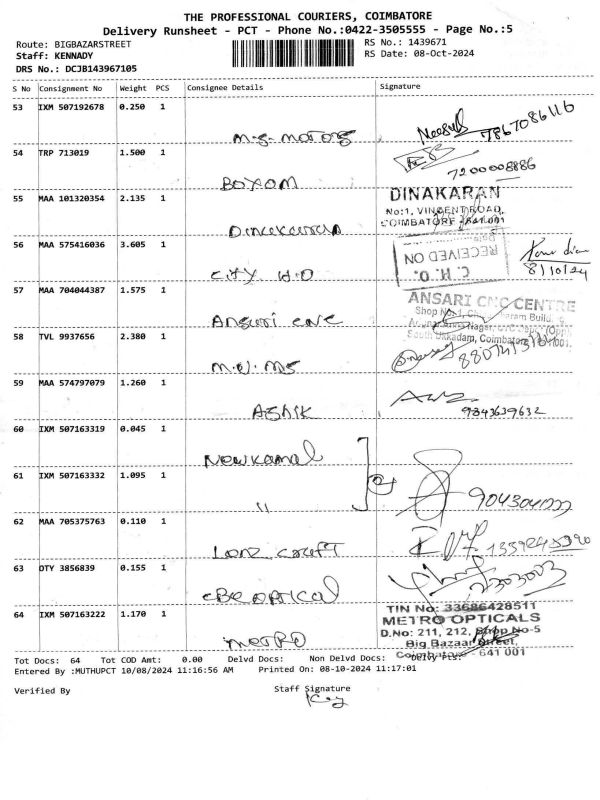 THE PROFESSIONAL COURIERS, COIMBATORE
Delivery Runsheet - PCT - Phone No.:0422-3505555 - Page No.:5
Route: BIGBAZARSTREET RS No.: 1439671
Staff: KENNADY RS Date: 08-Oct-2024
DRS No.: DCJB143967105
S No Consignment No Weight PCS Consignee Details Signature
53 IXM 507192678 0.250 1
M.S. MOTORS 7867086116
54 TRP 713019 1.500 1
BOXOM 7200008886
55 MAA 101320354 2.135 1 DINAKARAN
No:1, VINCENT ROAD,
Dinakaran COIMBATORE - 641 001
56 MAA 575416036 3.605 1 RECEIVED ON
CITY H.O C.H.O. 8/10/24
57 MAA 704044387 1.575 1 ANSARI CNC CENTRE
Ansuri CNC Ukkadam, Coimbatore
58 TVL 9937656 2.380 1
59 MAA 574797079 1.260 1
ASHIK 9843639632
60 IXM 507163319 0.045 1
Newkamal
61 IXM 507163332 1.095 1
〃
62 MAA 705375763 0.110 1
63 DTY 3856839 0.155 1
CBE OPTICAL
64 IXM 507163222 1.170 1 TIN No: 33686428511
METRO OPTICALS
D.No: 211, 212, Shop No-5
METRO Big Bazaar Street,
Coimbatore - 641 001
Tot Docs: 64 Tot COD Amt: 0.00 Delvd Docs: Non Delvd Docs: Delvy Pts:
Entered By :MUTHUPCT 10/08/2024 11:16:56 AM Printed On: 08-10-2024 11:17:01
Verified By Staff Signature